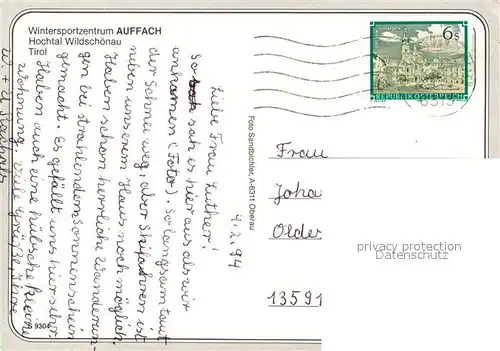 Wintersportzentrum AUFFACH
Hochtal Wildschönau
Tirol
4.2.94
Liebe Frau Luther!
So sah es hier aus als wir
ankamen (Foto). So langsam taut
der Schnee weg, aber Skifahren ist
neben unserem Haus noch möglich.
Haben schon herrliche Wanderun-
gen bei strahlendem Sonnenschein
gemacht. Es gefällt uns hier sehr.
Haben auch eine hübsche kleine
Wohnung. Viele Grüße, Ihre
W + U
S 9304
Foto Sandbichler, A-6311 Oberau
6 S
REPUBLIK ÖSTERREICH
Frau
Joha
Olde
13591
privacy protection
Datenschutz